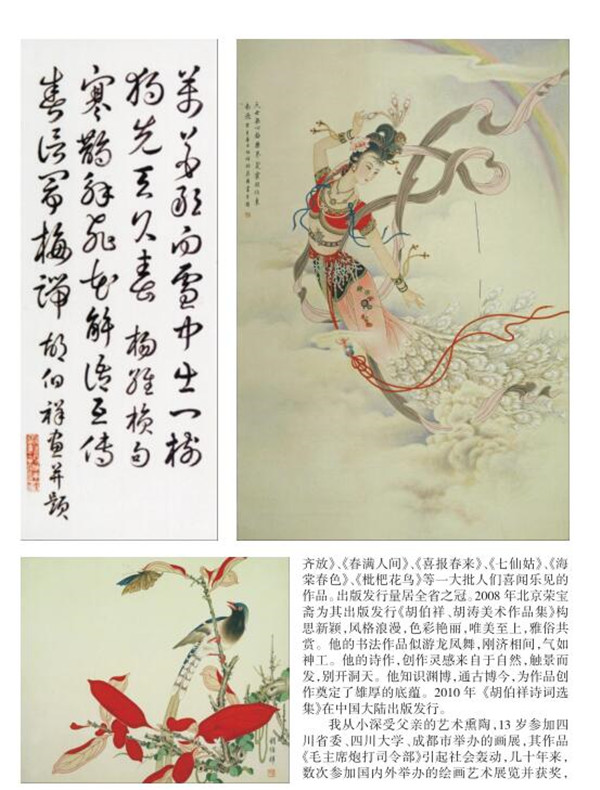 萬花敢向雪中出一樹
獨先天下春 楊維楨句
寒鵲飛花解語互傳
春信梅 胡伯祥画并题
胡伯祥
齐放》、《春满人间》、《喜报春来》、《七仙姑》、《海
棠春色》、《枇杷花鸟》等一大批人们喜闻乐见的
作品。出版发行量居全省之冠。2008 年北京荣宝
斋为其出版发行《胡伯祥、胡涛美术作品集》构
思新颖,风格浪漫,色彩艳丽,唯美至上,雅俗共
赏。他的书法作品似游龙凤舞,刚济相间,气如
神工。他的诗作,创作灵感来自于自然,触景而
发,别开洞天。他知识渊博,通古博今,为作品创
作奠定了雄厚的底蕴。2010 年《胡伯祥诗词选
集》在中国大陆出版发行。
我从小深受父亲的艺术熏陶,13 岁参加四
川省委、四川大学、成都市举办的画展,其作品
《毛主席炮打司令部》引起社会轰动,几十年来,
数次参加国内外举办的绘画艺术展览并获奖,